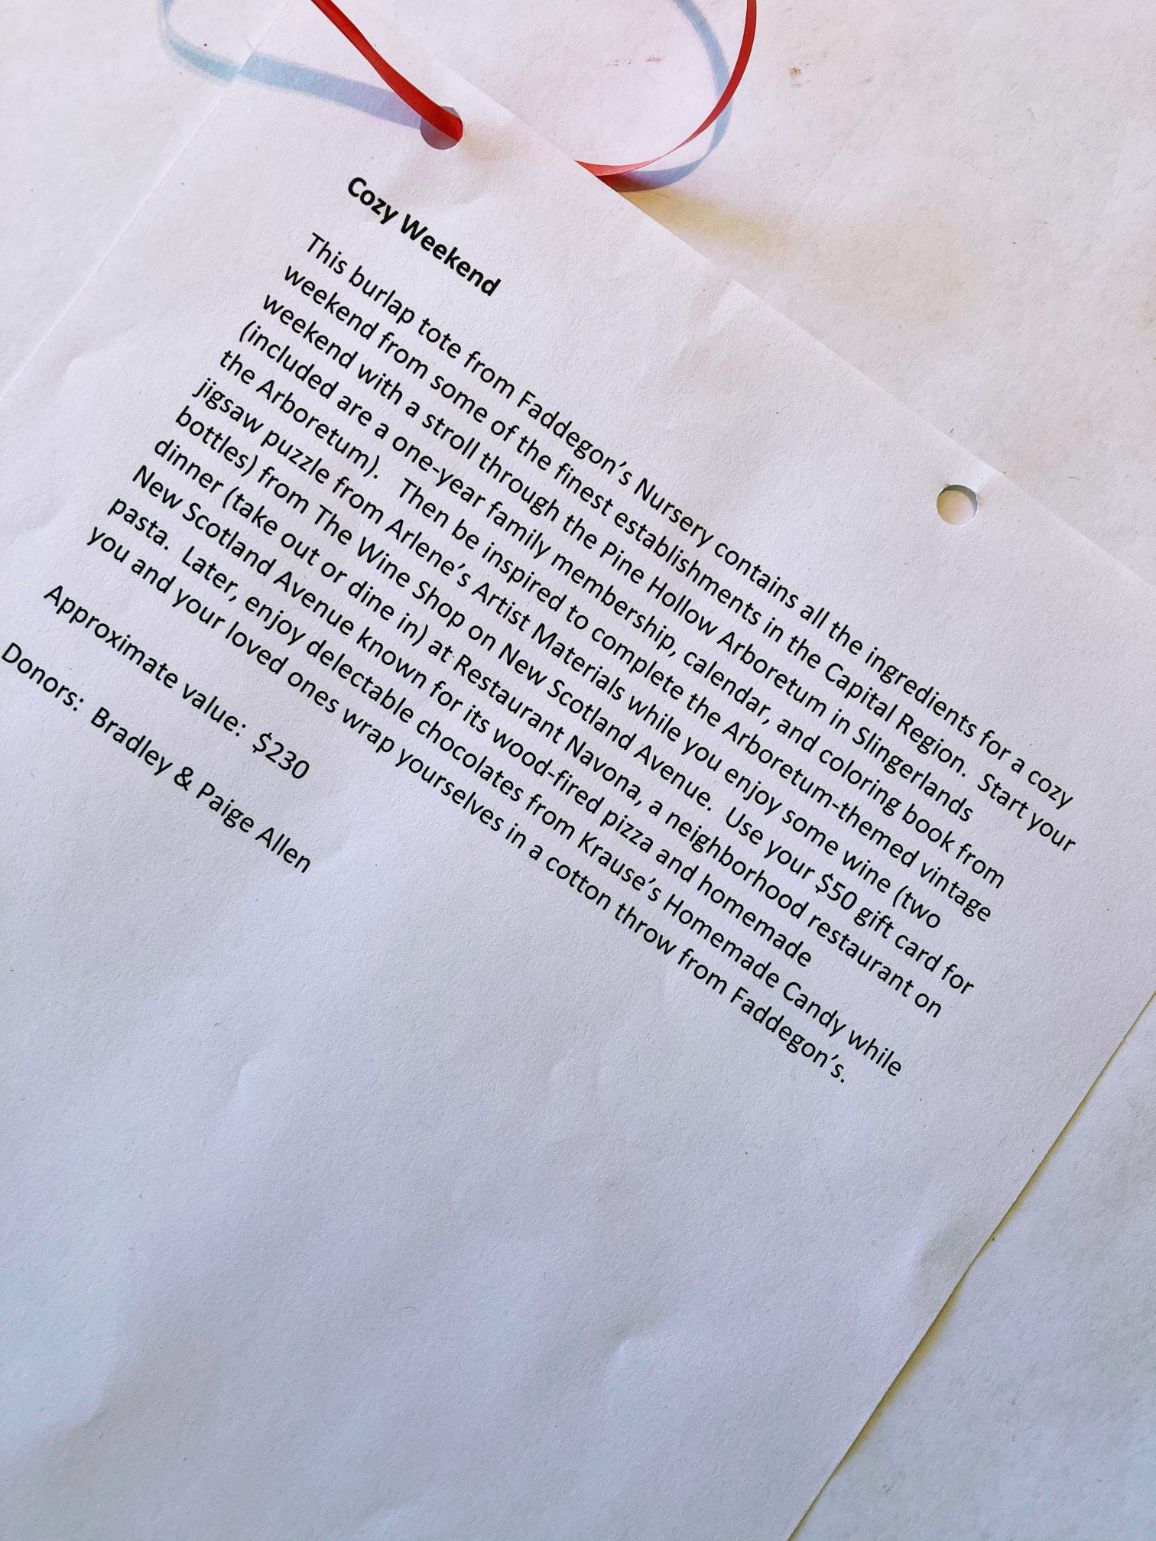 Cozy Weekend
This burlap tote from Faddegon's Nursery contains all the ingredients for a cozy
weekend from some of the finest establishments in the Capital Region.  Start your
weekend with a stroll through the Pine Hollow Arboretum in Slingerlands
(included are a one-year family membership, calendar, and coloring book from
the Arboretum).  Then be inspired to complete the Arboretum-themed vintage
jigsaw puzzle from Arlene's Artist Materials while you enjoy some wine (two
bottles) from The Wine Shop on New Scotland Avenue.  Use your $50 gift card for
dinner (take out or dine in) at Restaurant Navona, a neighborhood restaurant on
New Scotland Avenue known for its wood-fired pizza and homemade
pasta.  Later, enjoy delectable chocolates from Krause's Homemade Candy while
you and your loved ones wrap yourselves in a cotton throw from Faddegon's.
Approximate value:  $230
Donors:  Bradley & Paige Allen